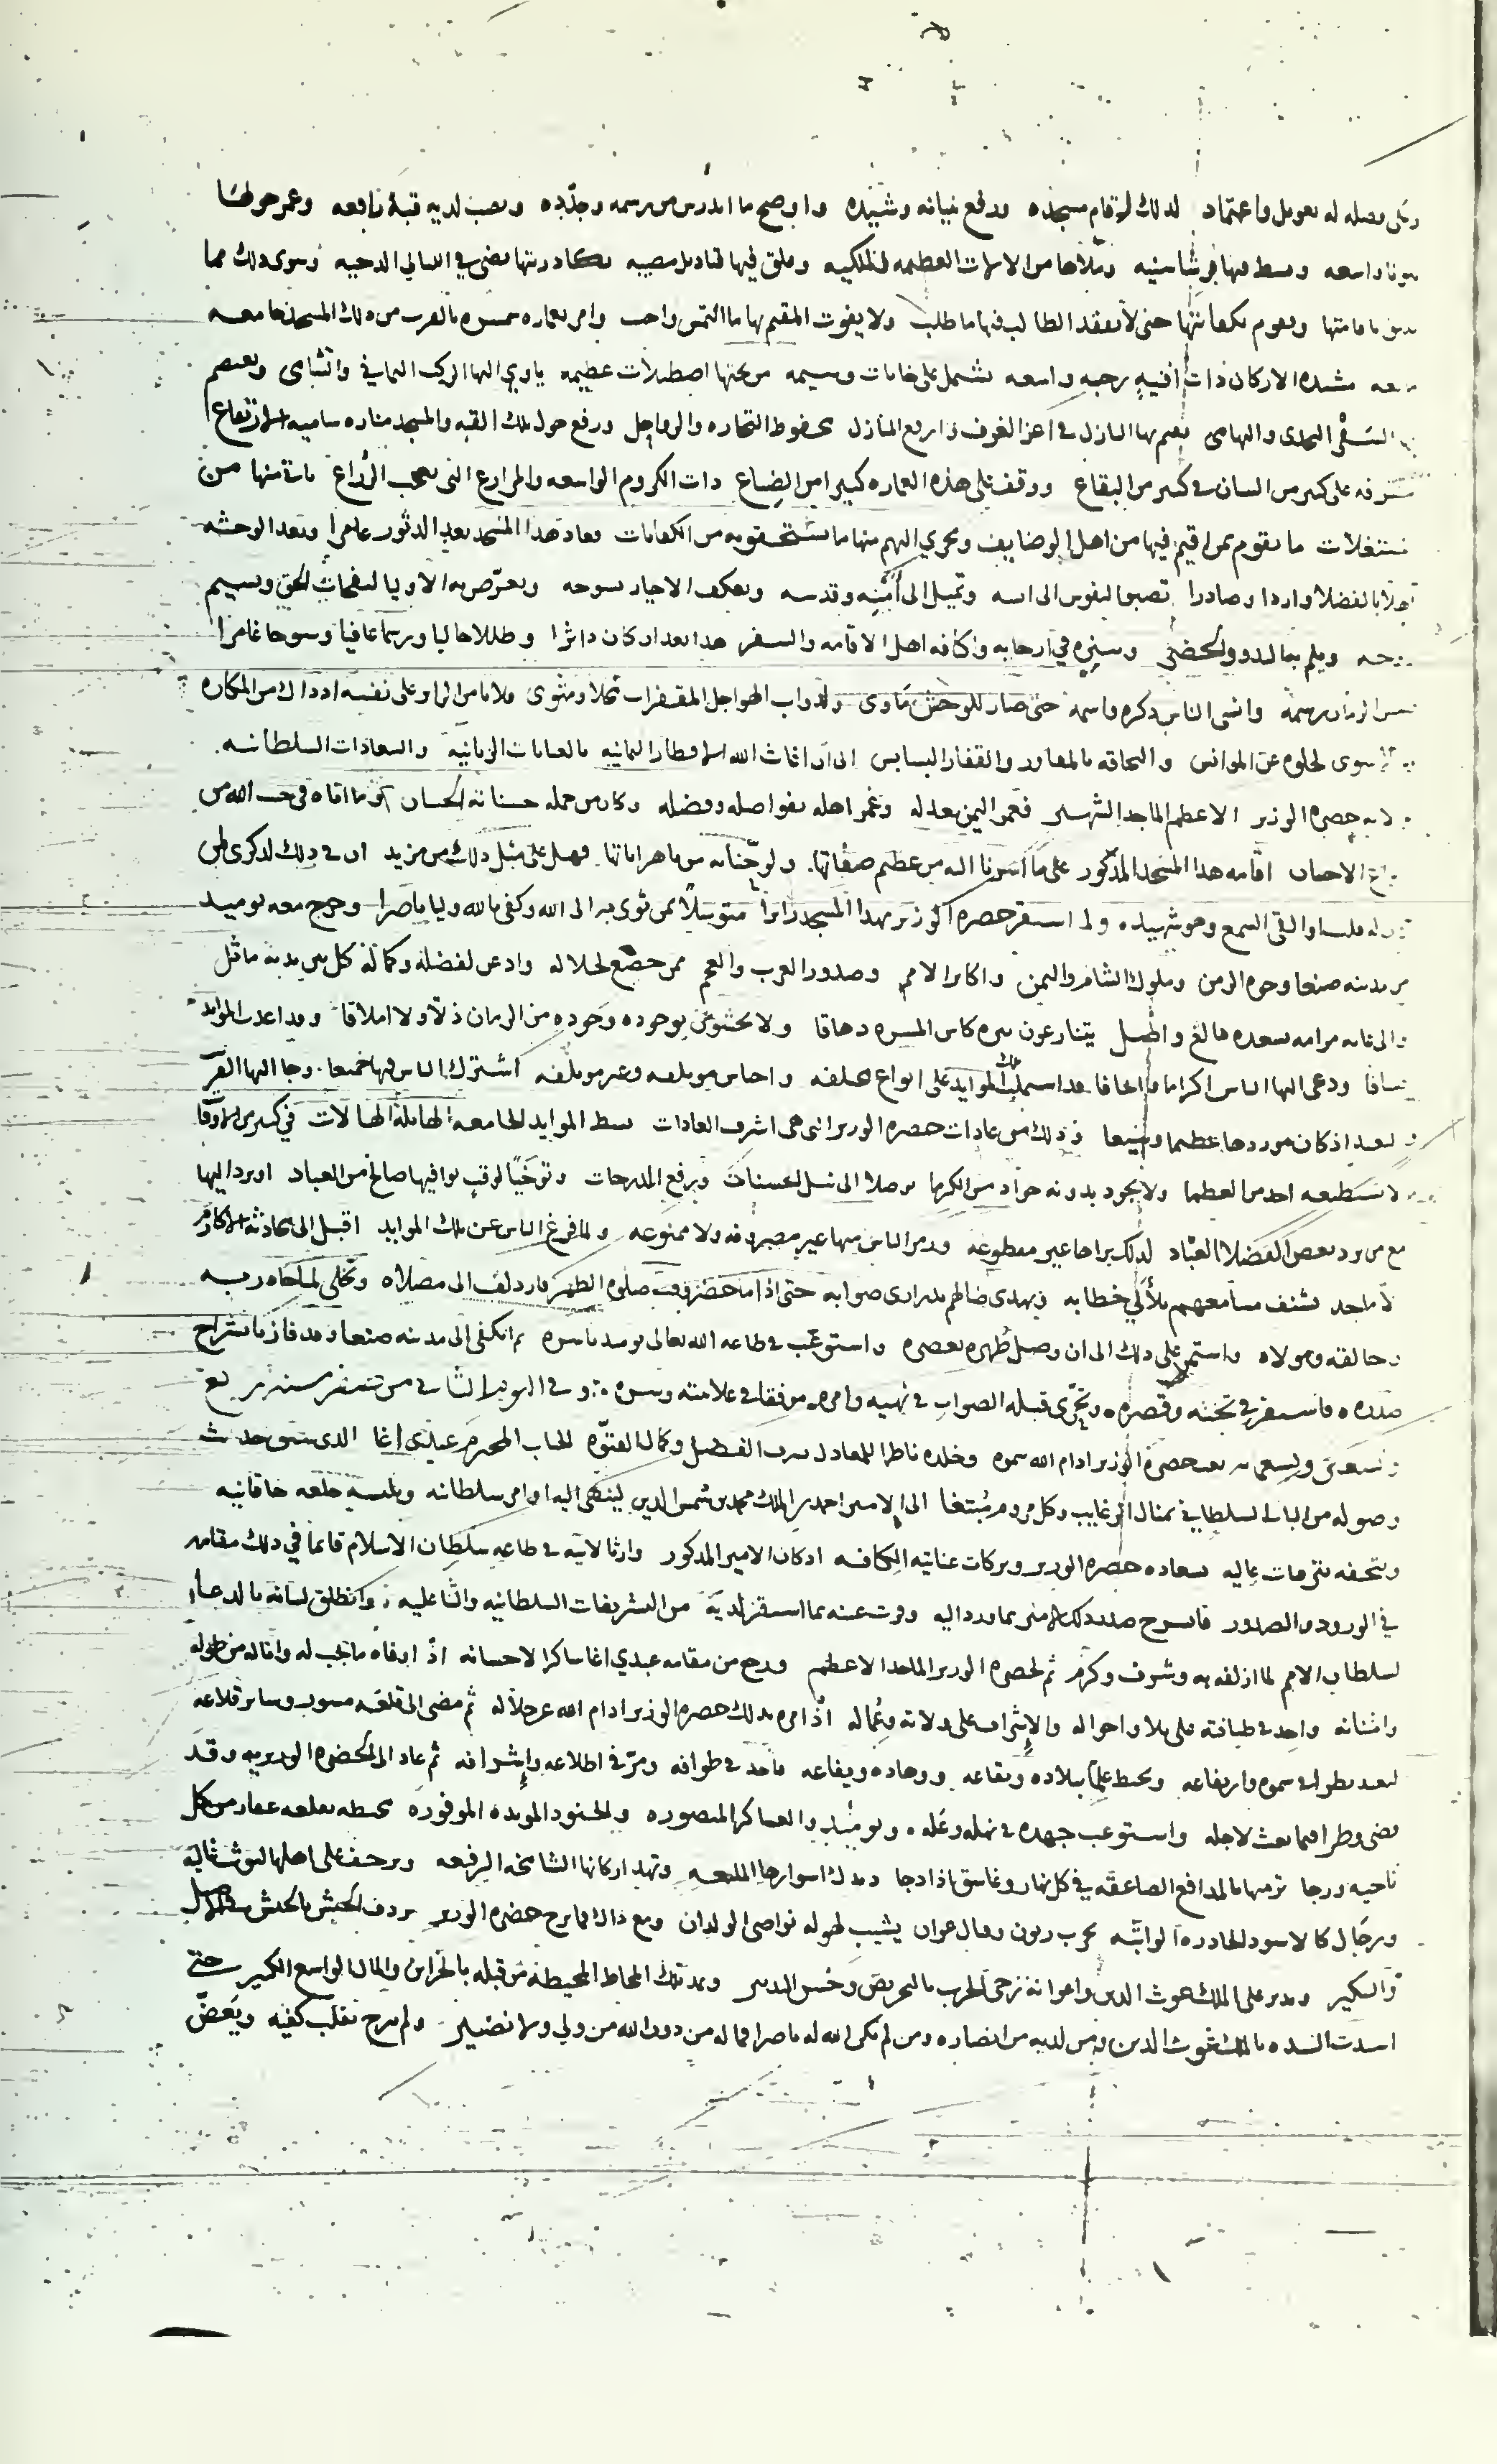 وعلى فضله له تعويل واعتماد لذلك اقام مسجده ورفع بنيانه وشيده واوضح ما اندرس من رسمه وجدّده ونصب لديه قبة رافعه وعمر حولها
بيوتا واسعه وبسط فيها فرشا سنيه وملأها من الالات العظيمه الملكيه وعلق فيها قناديل مضيه يكاد زيتها يضي في الليالي الدجيه وسوى ذلك مما
باقامتها ويقوم بكفايتها حتى لا يفقد الطالب فيها ما طلب ولا يفوت المقيم بها ما التمس واحب وامر بعماره سمسره بالقرب من ذلك المسجد جامعه
مشيده الاركان ذات افنيه رحبه واسعه تشتمل على خانات وسيمه من تحتها اصطبلات عظيمه ياوي اليها الركب اليماني والشامي ويعتصم
السفر النجدي والتهامي يقيم بها النازل في اعز الغرف وارفع المنازل محفوظ التجاره والرواحل ورفع حول تلك القبه والمسجد مناره ساميه الارتفاع
مشرفه على كثير من البقاع ووقف على هذه العماره كثيرا من الضياع ذات الكروم الواسعه والمزارع التي تعجب الزراع ياتي منها من
المستغلات ما يقوم بمن اقيم فيها من اهل الوضايف ويجري اليهم منها ما يستحقونه من الكفايات فعاد هذا المسجد بعد الدثور عامرا وبعد الوحشه
بالفضلا واردا وصادرا تصبو النفوس الى انسه وتميل الى امنه وقدسه ويعكف الاخيار بسوحه ويتعرض به الاوليا لنفحات الحق ونسيم
ويلم به البدو والحضر وسنزه في ارحابه واكنافه اهل الاقامه والسفر هذا بعد ان كان داثرا وطللا خاليا ورسما عافيا وسوحا غامرا
الزمان برسمه وانسى الناس ذكره واسمه حتى صار للوحش ماوى ولدواب الهواجل المقفرات محلا ومثوى فلا يامن الزاير على نفسه اذ ذاك من المكاره
سوى لخلوه عن الموانس والتحاقه بالمغاور والقفار البسابس الى ان اغاث الله الاقطار اليمانيه بالعنايات الربانيه والسعادات السلطانيه
حضره الوزير الاعظم الماجد الشهير فعمر اليمن بعدله وغمر اهله بفواضله وفضله وكان من جمله حسناته الحسان وما اتاه في حب الله من
الاحسان اقامه هذا المسجد المذكور على ما اشرنا اليه من عظيم صفاتها ولوحناه من باهر اياتها فهل على مثل ذلك من مزيد ان في ذلك لذكرى لمن
كان له قلب او القى السمع وهو شهيد ولما استقر حضره الوزير بهذا المسجد زايرا متوسلا بمن ثوى به الى الله وكفى بالله وليا وناصرا وخرج معه يوميد
من مدينه صنعا وجوه الزمن وملوك الشام واليمن واكابر الامم وصدور العرب والعجم ممن خضع لجلاله وادعن لفضله وكماله كل بين يديه ماثل
والى غايه مرامه بسعده بالغ واصل يتنازعون بينهم كاس المسره دهاقا ولا يخشون بوجوده وجوده من الزمان ذلا ولا املاقا وقد اعدت الموايد
ودعى اليها الناس اكراما واتحافا قد اشتملت تلك الموايد على انواع مختلفه واجناس مؤتلفه وغير مؤتلفه اشترك الناس فيها جميعا وجا اليها القريب
والبعيد اذ كان موردها عظيما وسيعا وذلك من عادات حضره الوزير التي هي اشرف العادات بسط الموايد الجامعه الهايله الهالات في كثير من الاوقات
لا يستطيعه احد من العظما ولا يجود بدونه جواد من الكرما توصلا الى نيل الحسنات ورفع الدرجات وتوخيا لوقت يوافيها صالح من العباد او يرد اليها
مع من يرد بعض الفضلا العباد لذلك تراها غير مقطوعه ودمر الناس منها غير مصروفه ولا ممنوعه ولما فرغ الناس عن تلك الموايد اقبل الى محادثة الاكابر
الاماجد يشنف مسامعهم بلآلي خطابه ويهدي ضالهم بدراري صوابه حتى اذا ما حضر وقت صلوه الظهر بادر دلف الى مصلاه وتخلى لمناجاه ربه
وخالقه ومولاه واستمر على ذلك الى ان وصل ظهره بعصره واستوعب في طاعه الله تعالى يوميد باسره ثم انكفى الى مدينه صنعا وقد فاز بانشراح
صدره فاستقر في تخته وقصره وتحرى قبله الصواب في نهيه وامره موفقا في علانيته وسره وفي اليوم الثاني من صفر سنه اربع
وتسعين وتسعمايه بعث حضره الوزير ادام الله سموه وخلده ناظرا للمعادل بشرف الفضل وكمال الفتوه الجناب المحترم عبدي اغا الذي سبق حديث
وصوله من الباب السلطاني بمنال الرغايب وكل مروم مبتغا الى الامير احمد بن الملك محمد بن شمس الدين لينهى اليه اوامر سلطانيه ويلبسه خلعه خاقانيه
ويتحفه بترقيات عاليه بسعاده حضره الوزير وبركات عنايته الكافيه اذ كان الامير المذكور وارثا لابيه في طاعه سلطان الاسلام قايما في ذلك مقامه
في الورود والصدور فانشرح صدر ذلك الامير بما ورد اليه وقرت عينه بما استقر لديه من التشريفات السلطانيه والثنا عليه وانطلق لسانه بالدعا
لسلطان الامم لما ازلفه به وشرف وكرم ثم لحضره الوزير الماجد الاعظم ورجع من مقامه عبدي اغا شاكرا لاحسانه اذ اوفاه ما يجب له واناله من طوله
وامتنانه واخذ في طيافته على بلاد احواله والاشراف على ولاته وعماله اذ امره بذلك حضره الوزير ادام الله عز جلاله ثم مضى الى قلعه مسور وساير قلاعه
ليعد بطوله في سموه وارتفاعه ويحيط علما ببلاده وبقاعه ووهاده ويفاعه فاخذ في طوافه ومر في اطلاعه واشرافه ثم عاد الى الحضره الوزيريه وقد
قضى وطرا فيما بعث لاجله واستوعب جهده في نهله وعله ويوميذ والعساكر المنصوره والجنود المويده الموفوره محيطه بقلعه عفار من كل
ناحيه ورجا ترميها بالمدافع الصاعقه في كل نهار وغاسق اذا دجا ودك اسوارها المنيعه وتهد اركانها الشامخه الرفيعه وبزحف على اهلها ليوث غالبه
ورجال كالاسود الخادره الواثبه بحرب زبون وقتال عوان يشيب لهوله نواصي الولدان ومع ذاك فما برح حضره الوزير يردف الجيش بالجيش
والتكبير ويدير على الملك غوث الدين واعوانه رحى الحرب بالتحريض وحسن التدبير ويمد تلك المحاط المحيطه من قبله بالخزاين والمال الواسع الكثير حتى
اشتدت الشده بالملك غوث الدين ومن لديه من انصاره ومن لم يكن الله له ناصرا فما له من دون الله من ولي ولا نصير ولم يبرح يقلب كفيه ويعض